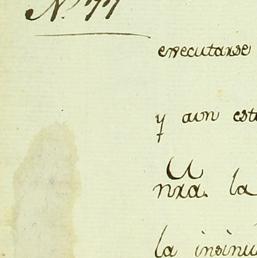 N.º 77
executarse
y aun est
nra. la
la insinu